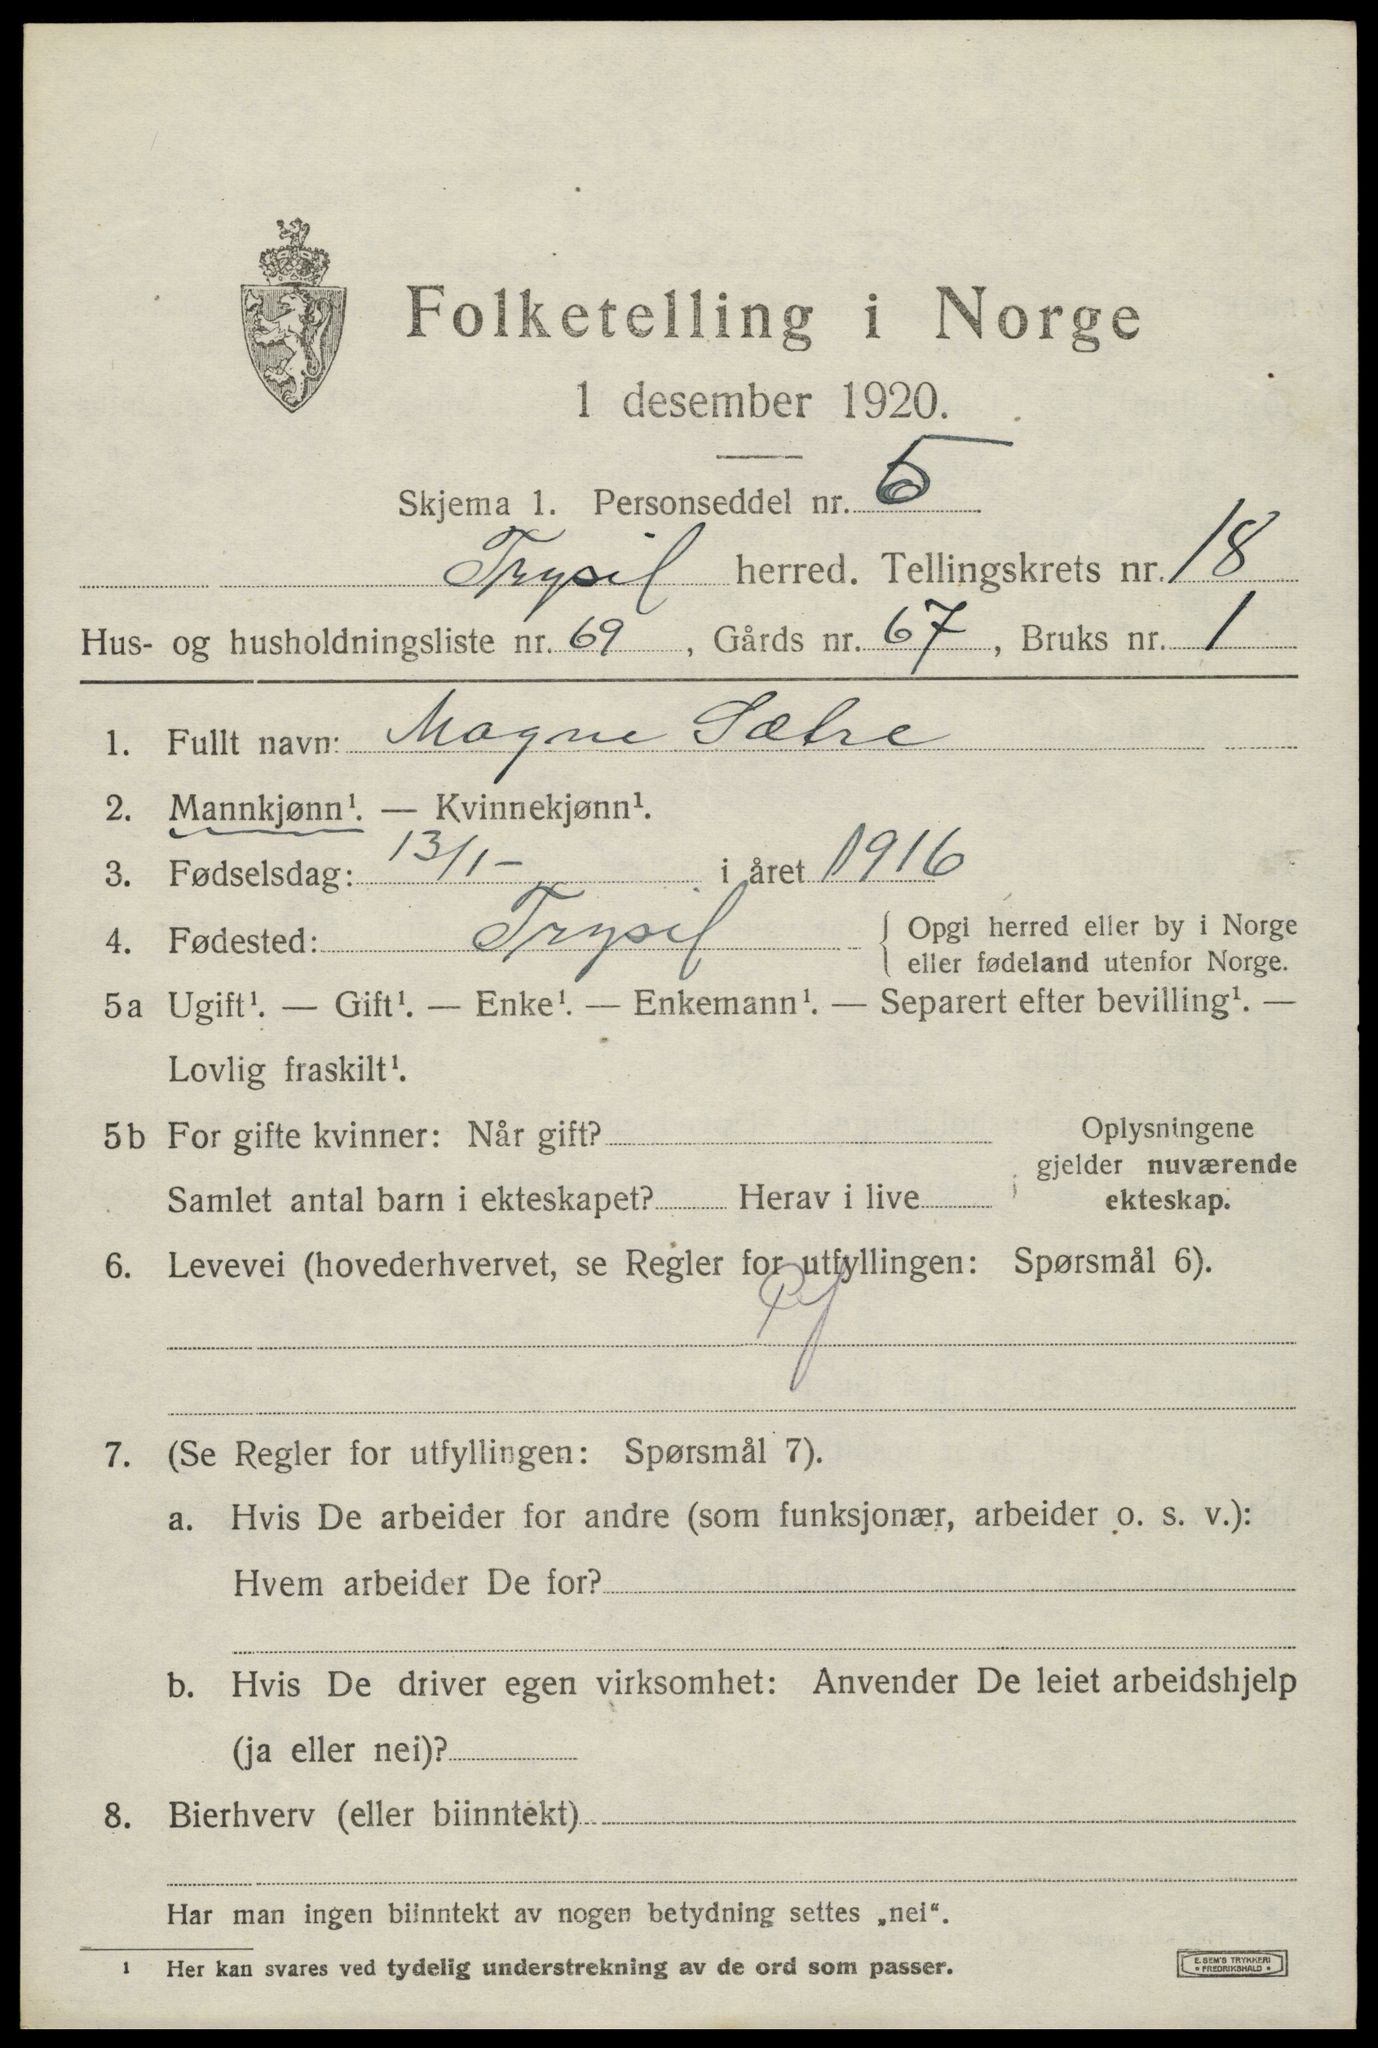 Folketelling i Norge
1 desember 1920.
Skjema 1. Personseddel nr. 5
Trysil herred. Tellingskrets nr. 18
Hus- og husholdningsliste nr. 69, Gårds nr. 67, Bruks nr. 1
1. Fullt navn: Magne Sætre
2. Mannkjønn¹. — Kvinnekjønn¹.
3. Fødselsdag: 13/1- i året 1916
4. Fødested: Trysil { Opgi herred eller by i Norge
eller fødeland utenfor Norge.
5a Ugift¹. — Gift¹. — Enke¹. — Enkemann¹. — Separert efter bevilling¹. —
Lovlig fraskilt¹.
5b For gifte kvinner: Når gift?
Samlet antal barn i ekteskapet? Herav i live
Oplysningene
gjelder nuværende
ekteskap.
6. Levevei (hovederhvervet, se Regler for utfyllingen: Spørsmål 6).
7. (Se Regler for utfyllingen: Spørsmål 7).
a. Hvis De arbeider for andre (som funksjonær, arbeider o. s. v.):
Hvem arbeider De for?
b. Hvis De driver egen virksomhet: Anvender De leiet arbeidshjelp
(ja eller nei)?
8. Bierhverv (eller biinntekt)
Har man ingen biinntekt av nogen betydning settes „nei“.
¹ Her kan svares ved tydelig understrekning av de ord som passer.
E. SEM'S TRYKKERI
• FREDRIKSHALD •